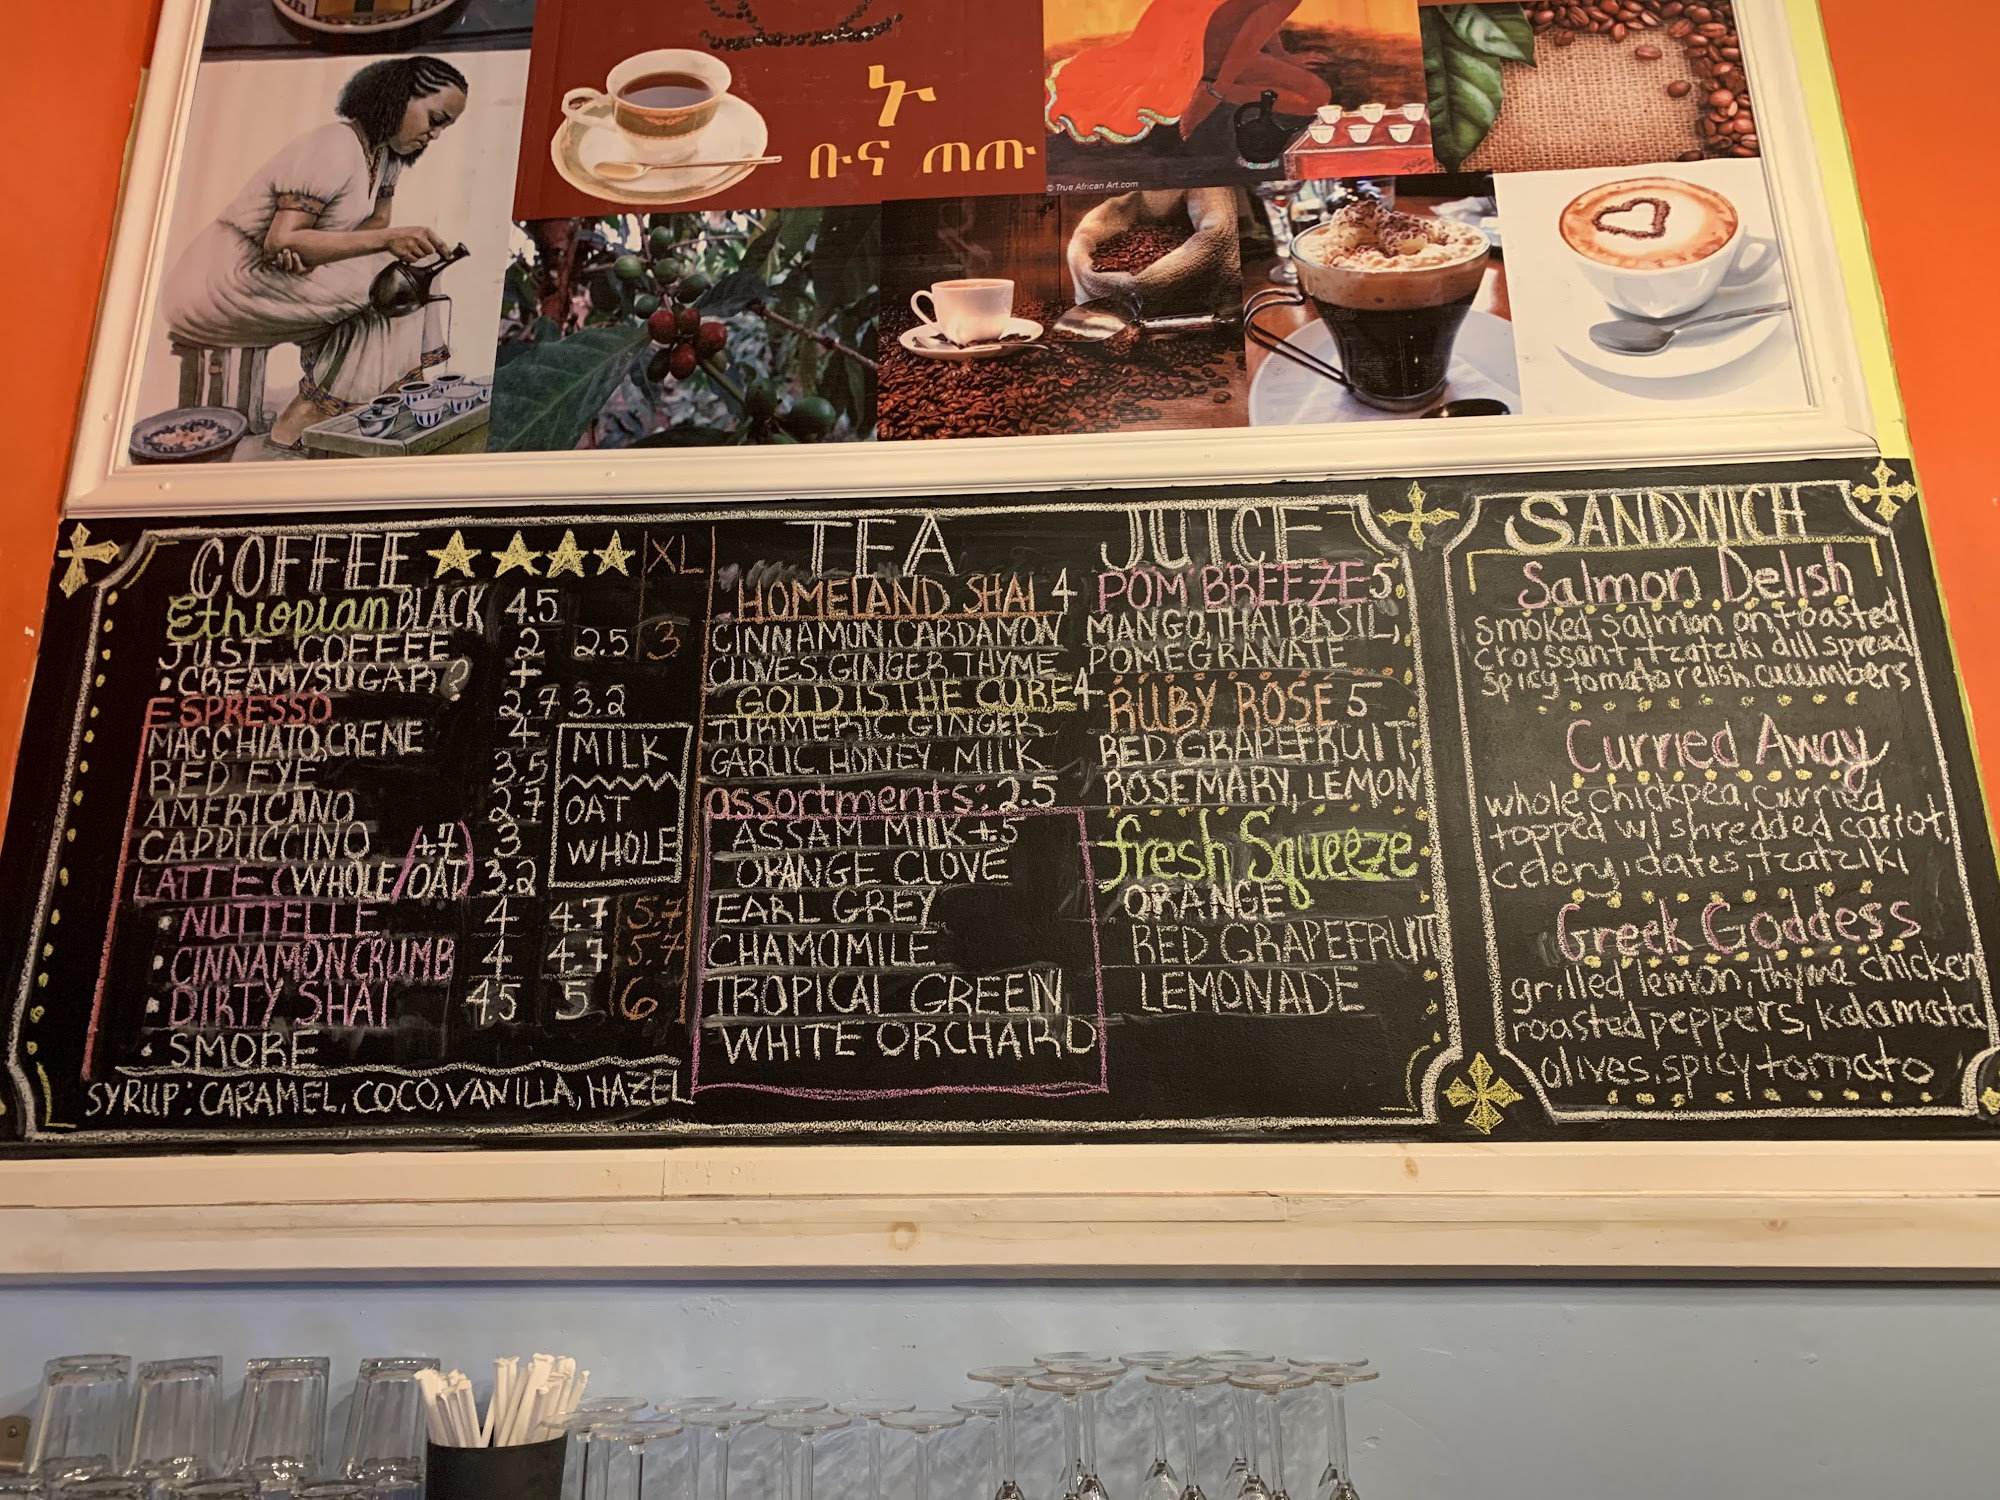 ኑ
ቡና ጠጡ
© True African Art.com
COFFEE XL
Ethiopian BLACK 4.5
JUST COFFEE 2 2.5 3
• CREAM/SUGAR? +
ESPRESSO 2.7 3.2
MACCHIATO, CREME 4
RED EYE 3.5
AMERICANO 2.7
CAPPUCCINO 3
LATTE (WHOLE/OAT) 4.7 3.2
• NUTTELLE 4 4.7 5.7
• CINNAMON CRUMB 4 4.7 5.7
• DIRTY SHAI 4.5 5 6
• SMORE
SYRUP: CARAMEL, COCO, VANILLA, HAZEL
MILK
OAT
WHOLE
TEA
HOMELAND SHAI 4
CINNAMON, CARDAMON
CLOVES, GINGER, THYME
GOLD IS THE CURE 4
TURMERIC, GINGER
GARLIC, HONEY, MILK
assortments: 2.5
ASSAM MILK +.5
ORANGE CLOVE
EARL GREY
CHAMOMILE
TROPICAL GREEN
WHITE ORCHARD
JUICE
POM BREEZE 5
MANGO, THAI BASIL,
POMEGRANATE
RUBY ROSE 5
RED GRAPEFRUIT,
ROSEMARY, LEMON
fresh Squeeze
ORANGE
RED GRAPEFRUIT
LEMONADE
SANDWICH
Salmon Delish
smoked salmon on toasted
croissant, tzatziki dill spread
spicy tomato relish, cucumbers
Curried Away
whole chickpea, curried
topped w/ shredded carrot,
celery, dates, tzatziki
Greek Goddess
grilled lemon, thyme chicken
roasted peppers, kalamata
olives, spicy tomato